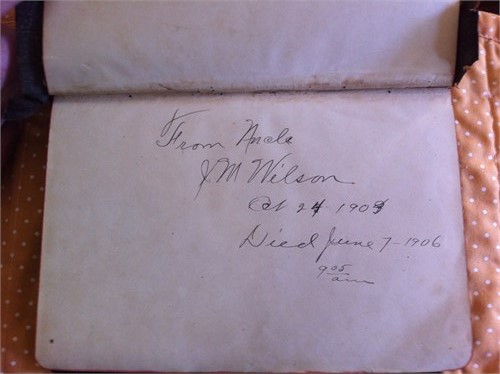 From Uncle
J M Wilson
Oct 24 - 1905
Died June 7 - 1906
9 05 am